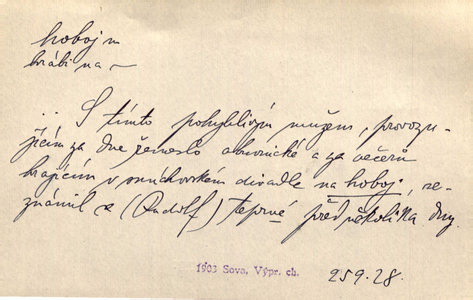 hoboj m
hráti na –
... S tímto pohyblivým mužem, provozu-
jícím za dne řemeslo obuvnické a za večerů
hrajícím v smíchovském divadle na hoboj, se-
známil se (Rudolf) teprvé před několika dny.
1903 Sova, Výpr. ch.
259.28.